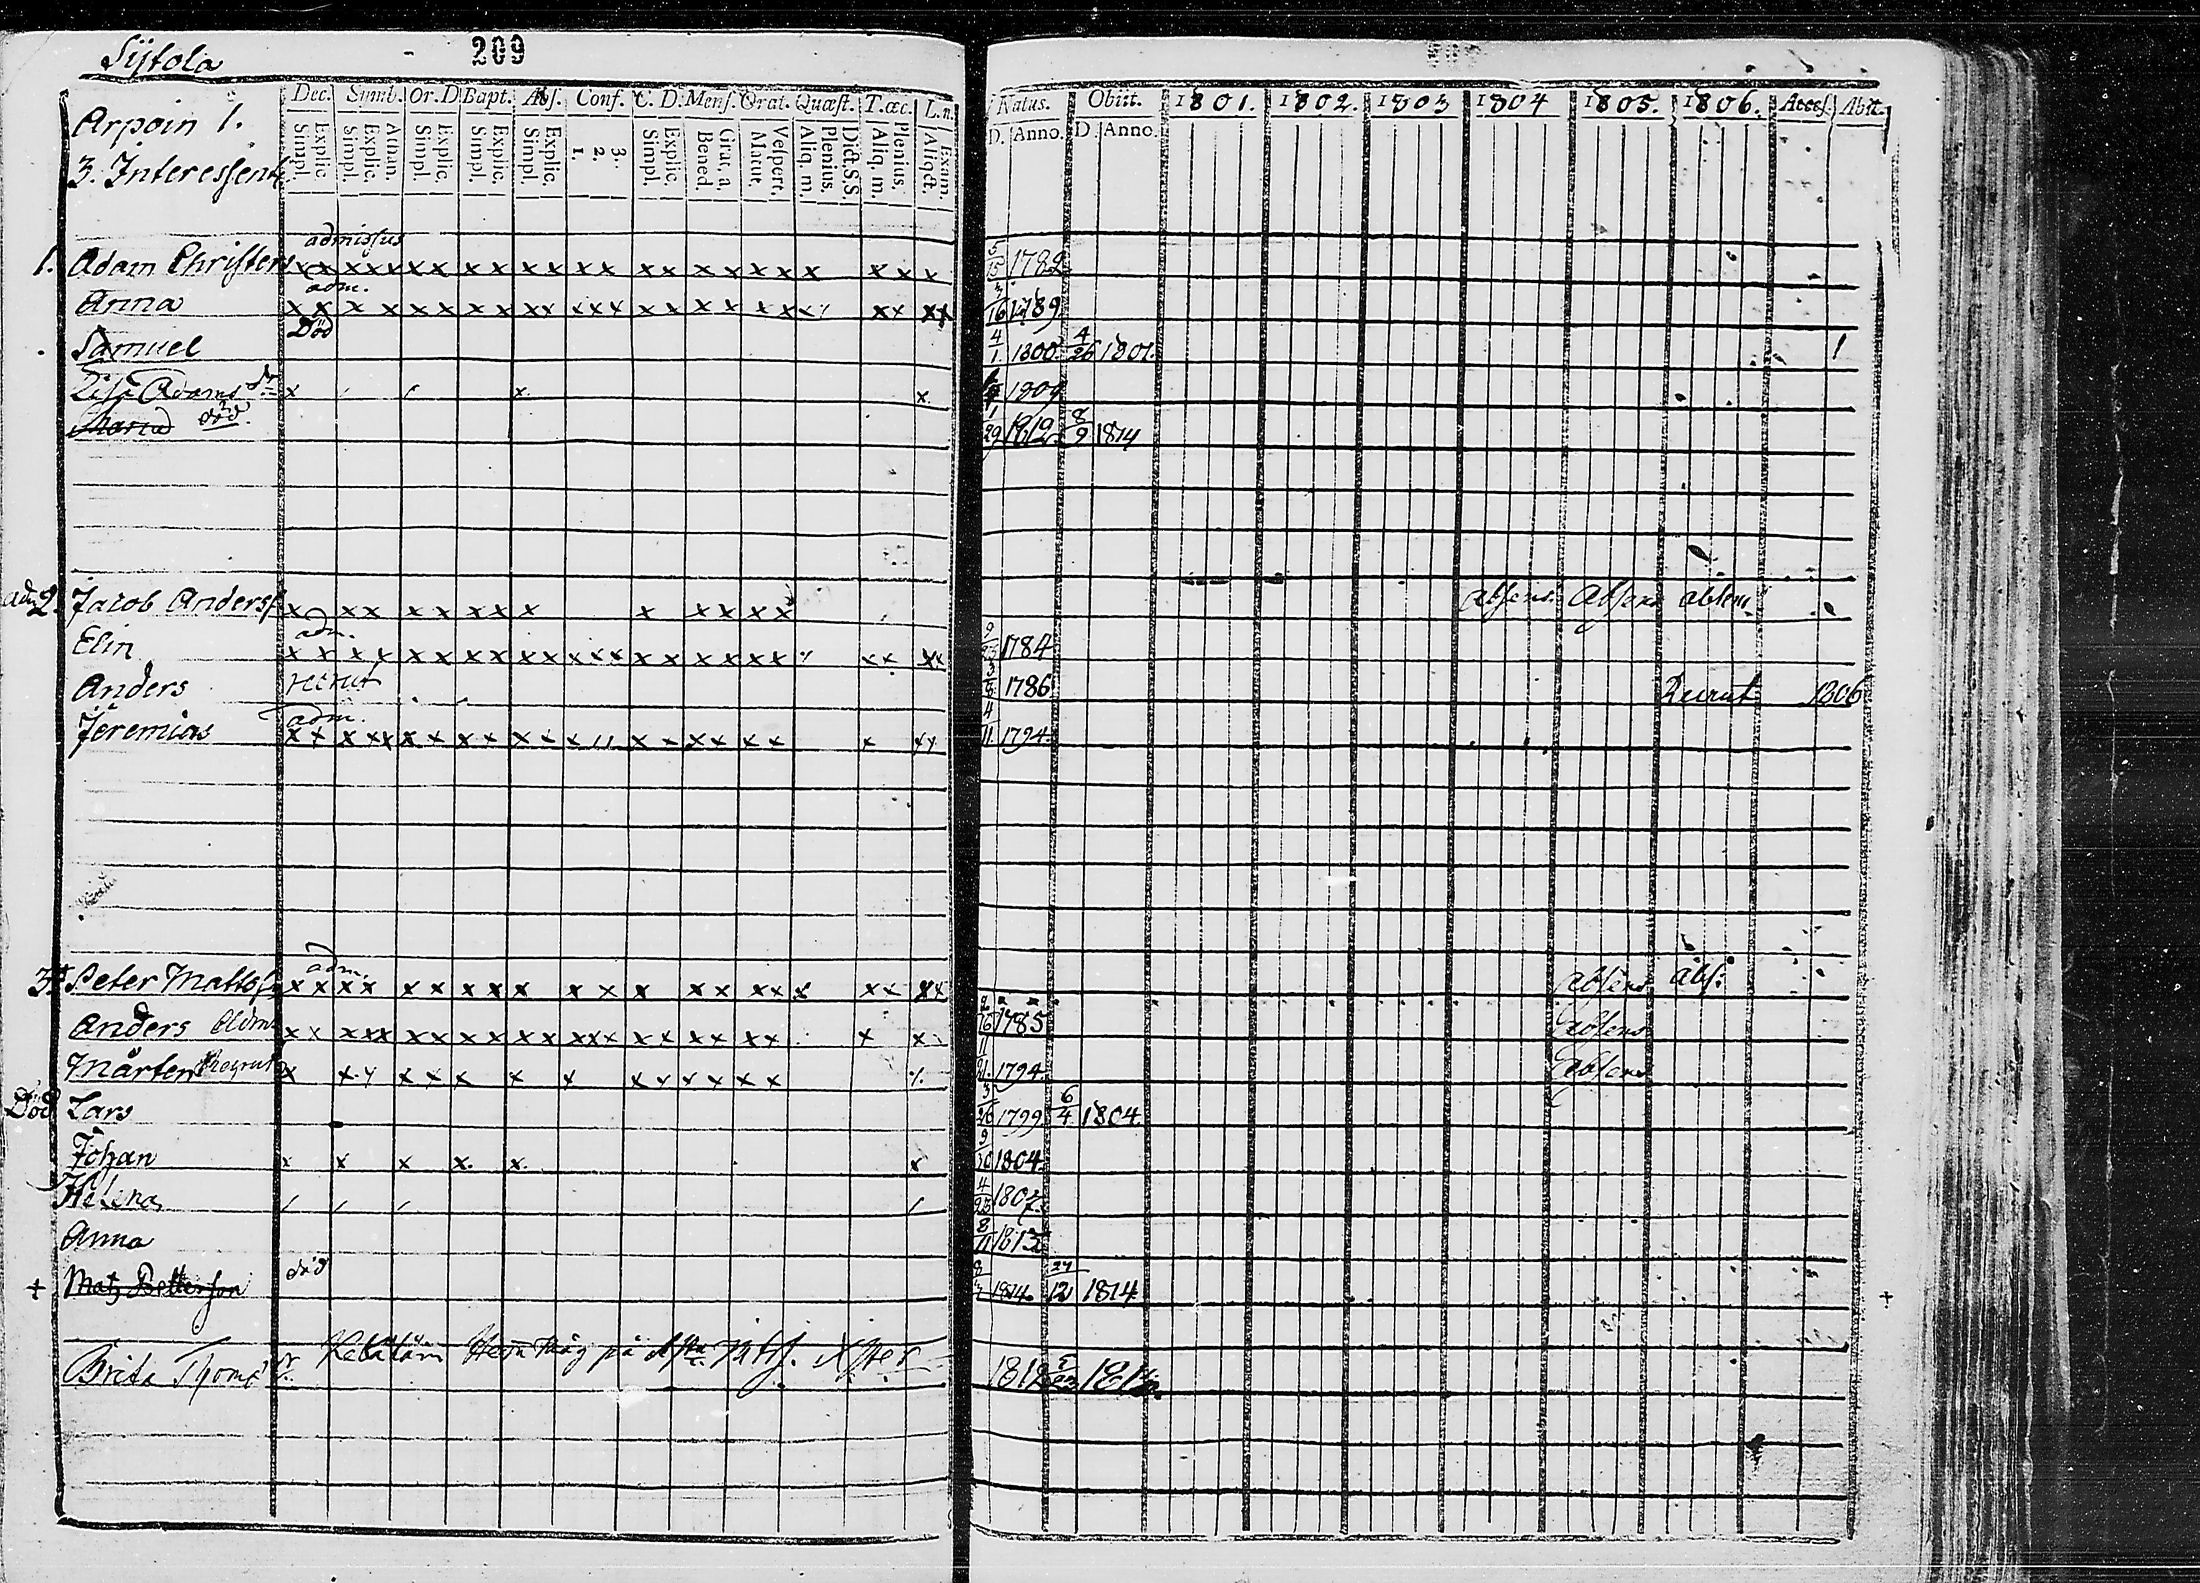 Sijtola 209
Arpoin 1.
3. Interessent
Dec. Symb. Or. D Bapt. Abs. Conf. C. D. Mens. Orat. Quæst. T. œc. L. n.
Simpl. Explic. Simpl. Explic. Athan. Simpl. Explic. Simpl. Explic. Simpl. Explic. 1. 2. 3. Simpl. Explic. Bened. Grat. a. Matut. Vespert. Aliq. m. Plenius. Dict. S. S. Aliq. m. Plenius. Aliqčt. Exam.
Natus. Obiit. 1801. 1802. 1803 1804 1805. 1806. Access. Abit.
D. Anno. D. Anno.
admissus
1. Adam Christers x x x x x x x x x x x x x x x x x x x x x x x 5/15 1782
adm.
Anna x x x x x x x x x x x x x x x x x x x x x x x 3/16 1789
Död
Samuel 4/1 1800. 4/26 1801. 1
Lisa Adams dr x x x 1809
Maria död 1/29 1812 8/9 1814
adm 2. Jacob Anders x x x x x x x x x x x x x absens. Absens absens
adm.
Elin x x x x x x x x x x x x x x x x x x x x x x 9/23 1784
Anders recrut 3/8 1786 Recrut 1806
adm.
Jeremias x x x x x x x x x x x x x x x x x x x x 4/11. 1794.
adm.
3. Peter Matts x x x x x x x x x x x x x x x x x x x x x absens abs.
Anders Adm x x x x x x x x x x x x x x x x x x x x x x 2/16 1785 absens
Mårten Recrut x x x x x x x x x x x x x x 11/21. 1794. Absens
Död Lars 3/26 1799 6/4 1804.
Johan x x x x x x 9/30 1804.
Helena 4/23 1807.
Anna 8/11 1813
+ Matz Petterson död 8/3 1814. 27/12 1814 +
Brita Thom dr. på 181